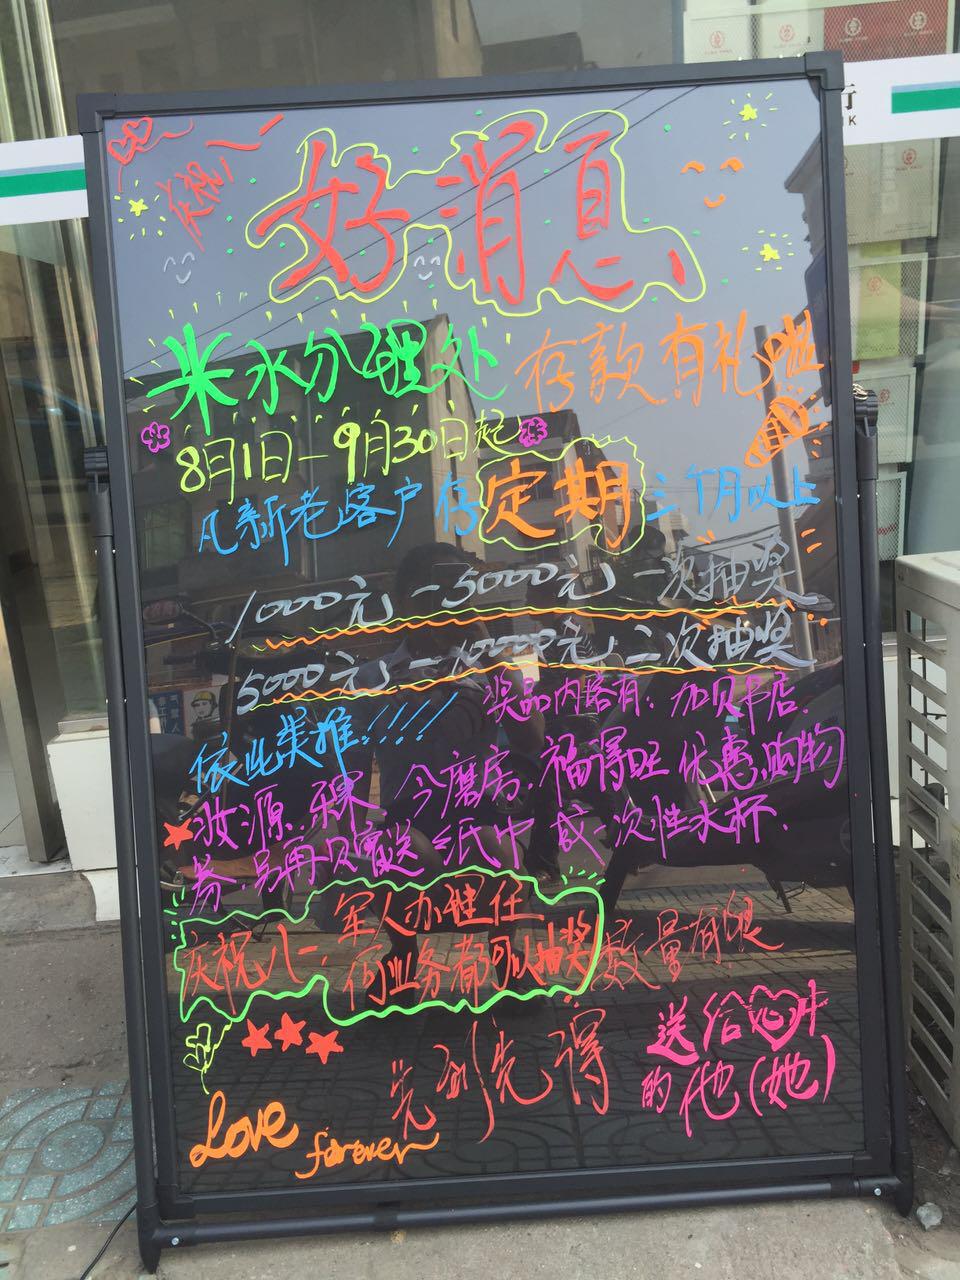 庆祝八一
好消息
米水分理处 存款有礼啦
8月1日-9月30日起
凡新老客户存定期三个月以上
1000元-5000元一次抽奖
5000元-10000元二次抽奖
依此类推!!!!!
奖品内容有：加贝书店.
妆源.来.今磨房.福得旺优惠购物
券.另再贝赠送纸巾或一次性水杯.
庆祝八一.军人办理任
何业务都可以抽奖 数量有限
先到先得
送给心中
的他(她)
Love
forever